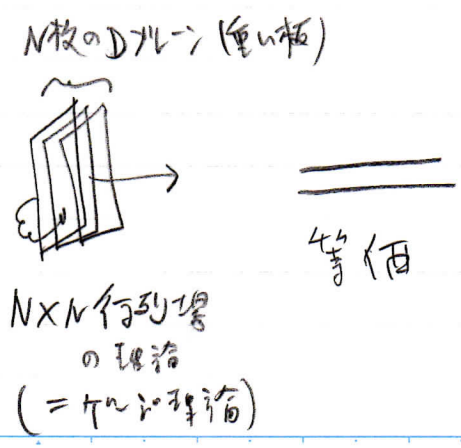 N枚のDブレーン(重い板)
等価
N×N行列場
の理論
(=ゲージ理論)